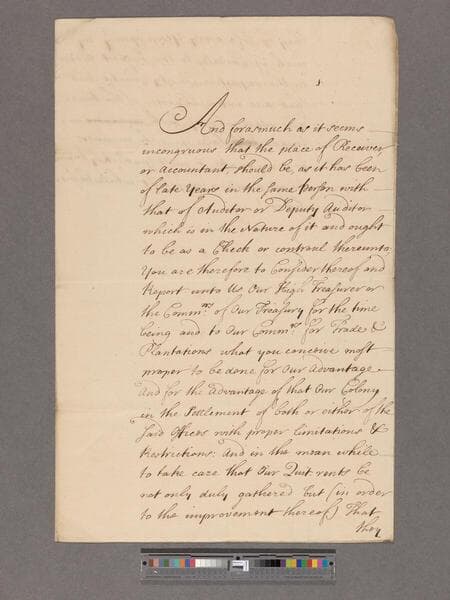 And forasmuch as it seems
incongruous that the place of Receiver
or Accountant, should be, as it has been
of late Years in the same person with
that of Auditor or Deputy Auditor
which is in the Nature of it and ought
to be as a Check or controul thereunto
You are therefore to Consider thereof and
Report unto Us Our High Treasurer or
the Comm.rs of Our Treasury for the time
being and to Our Comm.rs for Trade &
Plantations what you conceive most
proper to be done for Our Advantage
And for the Advantage of that Our Colony
in the Settlement of both or either of the
said Offices with proper limitations &
Restrictions: And in the mean while
to take care that Our Quit rents be
not only duly gathered but (in order
to the improvement thereof) That
they